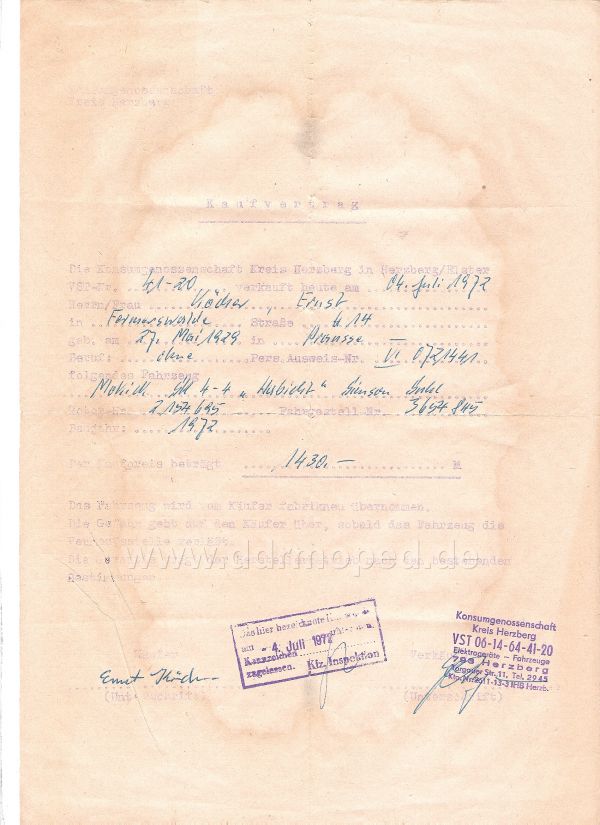 Konsumgenossenschaft
Kreis Herzberg
Kaufvertrag
Die Konsumgenossenschaft Kreis Herzberg in Herzberg/Elster
VST-Nr. 41-20 verkauft heute am 04. Juli 1972
Herrn/Frau Ernst
in Straße 14
geb. am 27. Mai 1929 in
Beruf: ohne Pers.Ausweis-Nr. VI 0721441
folgendes Fahrzeug
Mokick SR 4-4 "Habicht" Simson Suhl
Motor-Nr. 2154695 Fahrgestell Nr. 3654845
Baujahr: 1972
Der Kaufpreis beträgt 1430.- M
Das Fahrzeug wird vom Käufer fabrikneu übernommen.
Die Gefahr geht auf den Käufer über, sobald das Fahrzeug die
Verkaufsstelle verläßt.
Die nach den bestehenden
Bestimmungen
www.ddrmoped.de
Das hier bezeichnete
am - 4. Juli 1972
Kennzeichen
zugelassen. Kfz. Inspektion
Konsumgenossenschaft
Kreis Herzberg
VST 06-14-64-41-20
Elektrogeräte - Fahrzeuge
793 Herzberg
Torgauer Str. 11, Tel. 2945
Käufer
Ernst
(Unterschrift) (Unterschrift)